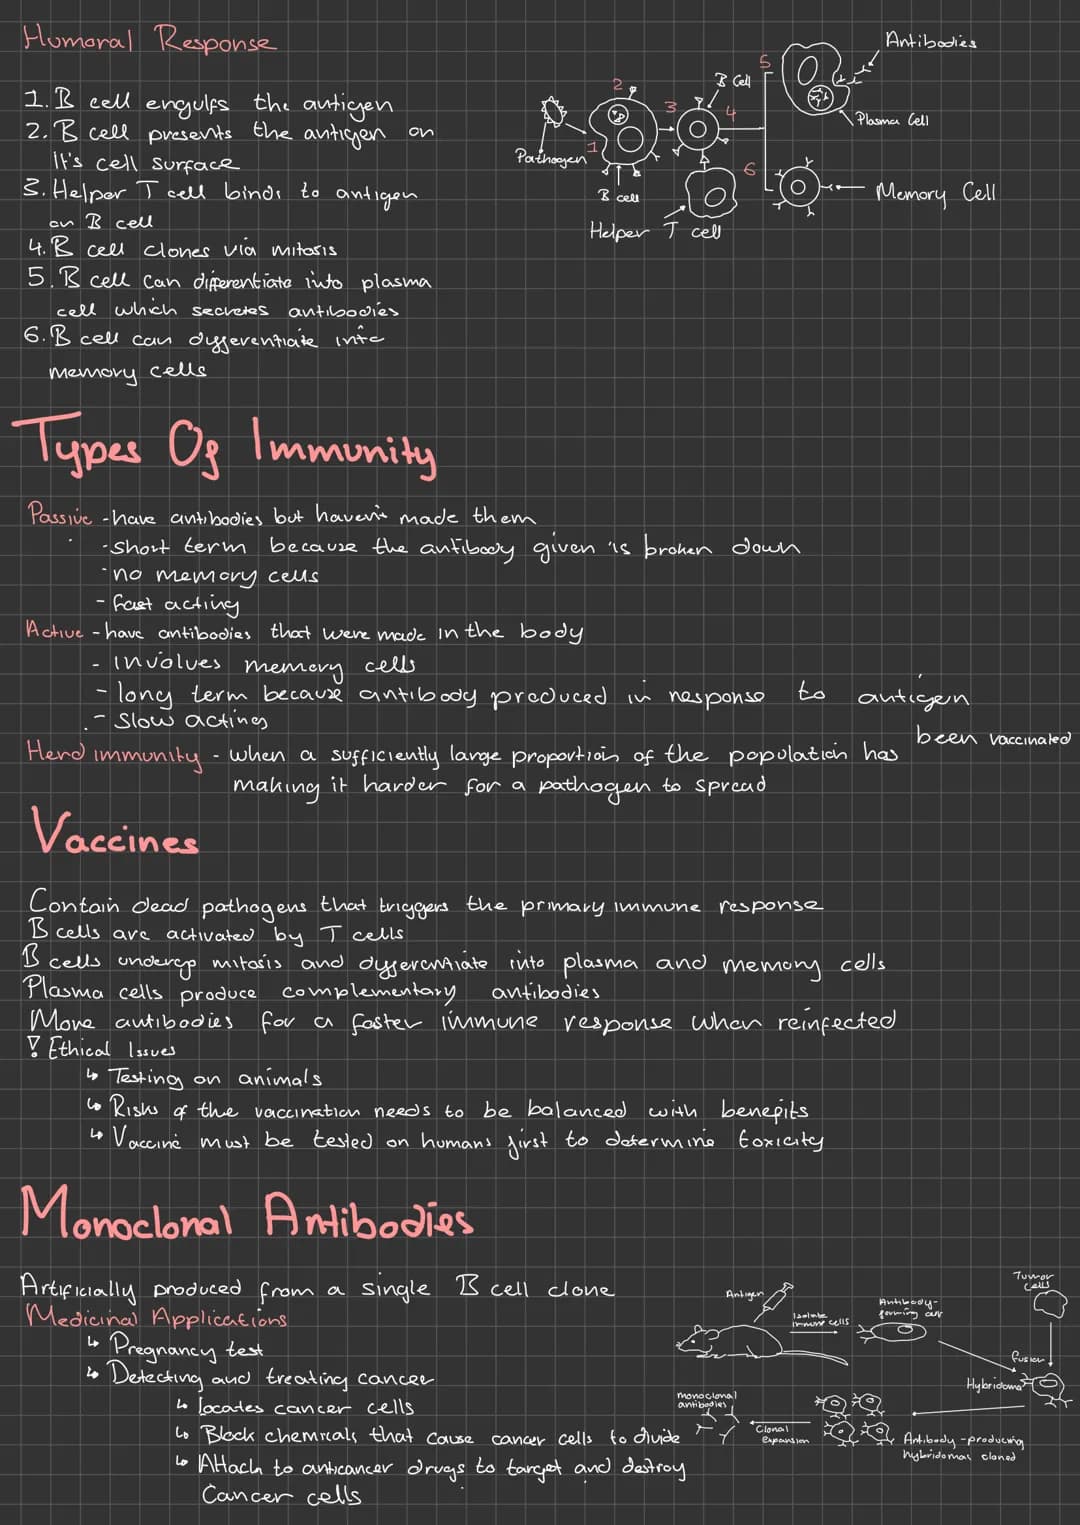 Humoral Response
1. B cell engulfs the antigen
2. B cell presents the antigen on
It's cell surface
3. Helper T cell binds to antigen
on B cell
4. B cell clones via mitosis
5. B cell can differentiate into plasma
cell which secretes antibodies
6. B cell can differentiate into
memory cells
Antibodies
5
B Cell
2
3
4
Plasma Cell
Pathogen
1
6
B cell
Memory Cell
Helper T cell
Types Of Immunity
Passive - have antibodies but haven't made them
- short term because the antibody given is broken down
- no memory cells
- fast acting
Active - have antibodies that were made in the body
- involves memory cells
- long term because antibody produced in response to antigen
- Slow acting
Herd immunity - when a sufficiently large proportion of the population has been vaccinated
making it harder for a pathogen to spread
Vaccines
Contain dead pathogens that triggers the primary immune response
B cells are activated by T cells
B cells undergo mitosis and differentiate into plasma and memory cells
Plasma cells produce complementary antibodies
More antibodies for a faster immune response when reinfected
! Ethical Issues
↳ Testing on animals
↳ Risks of the vaccination needs to be balanced with benefits
↳ Vaccine must be tested on humans first to determine toxicity
Monoclonal Antibodies
Artificially produced from a single B cell clone
Medicinal Applications
↳ Pregnancy test
↳ Detecting and treating cancer
↳ locates cancer cells
↳ Block chemicals that cause cancer cells to divide
↳ Attach to anticancer drugs to target and destroy
Cancer cells
Tumor
cells
Antigen
Isolate
immune cells
Antibody-
forming cell
fusion
Hybridoma
monoclonal
antibodies
Clonal
expansion
Antibody-producing
hybridomas cloned